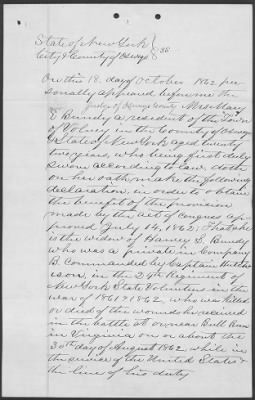 State of New York
City & County of Oswego } SS
On this 18 day of October 1862 per-
sonally appeared before me the
Judge of Oswego County Mrs Mary
E Bundy a resident of the Town
of Volney in the County of Oswego
& State of New York aged twenty
two years, who being first duly
sworn according to law, doth
on her oath, make the following
declaration, in order to obtain
the benefit of the provision
made by the act of Congress ap-
proved July 14, 1862; That she
is the widow of Harvey E. Bundy
who was a private in Company
B commanded by Captain
in the 24th Regiment of
New York State Volunteers in the
war of 1861 & 1862, who was killed
or died of the wounds he received
in the battle at or near Bull Run
in Virginia on or about the
30th day of August 1862 while in
the service of the United States &
the line of his duty